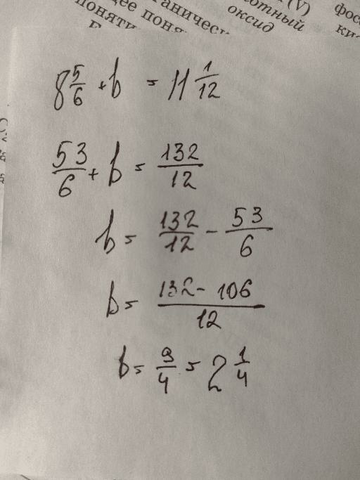 аническ
отный
(V)
фос
щее поня
оксид
ки
поняти
8 5/6 + b = 11 1/12
53/6 + b = 132/12
b = 132/12 - 53/6
b = (132 - 106)/12
b = 9/4 = 2 1/4